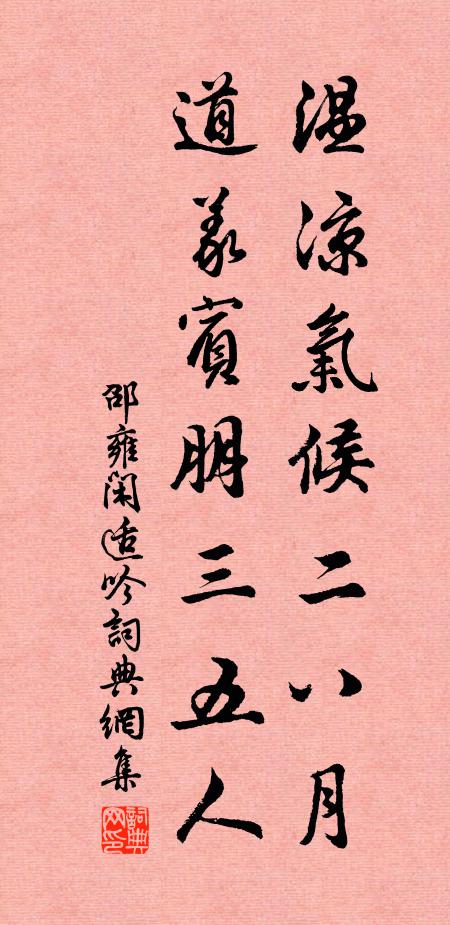 温涼氣候二八月
道義賓朋三五人
邵雍閑適吟詞典網集
詞典網印